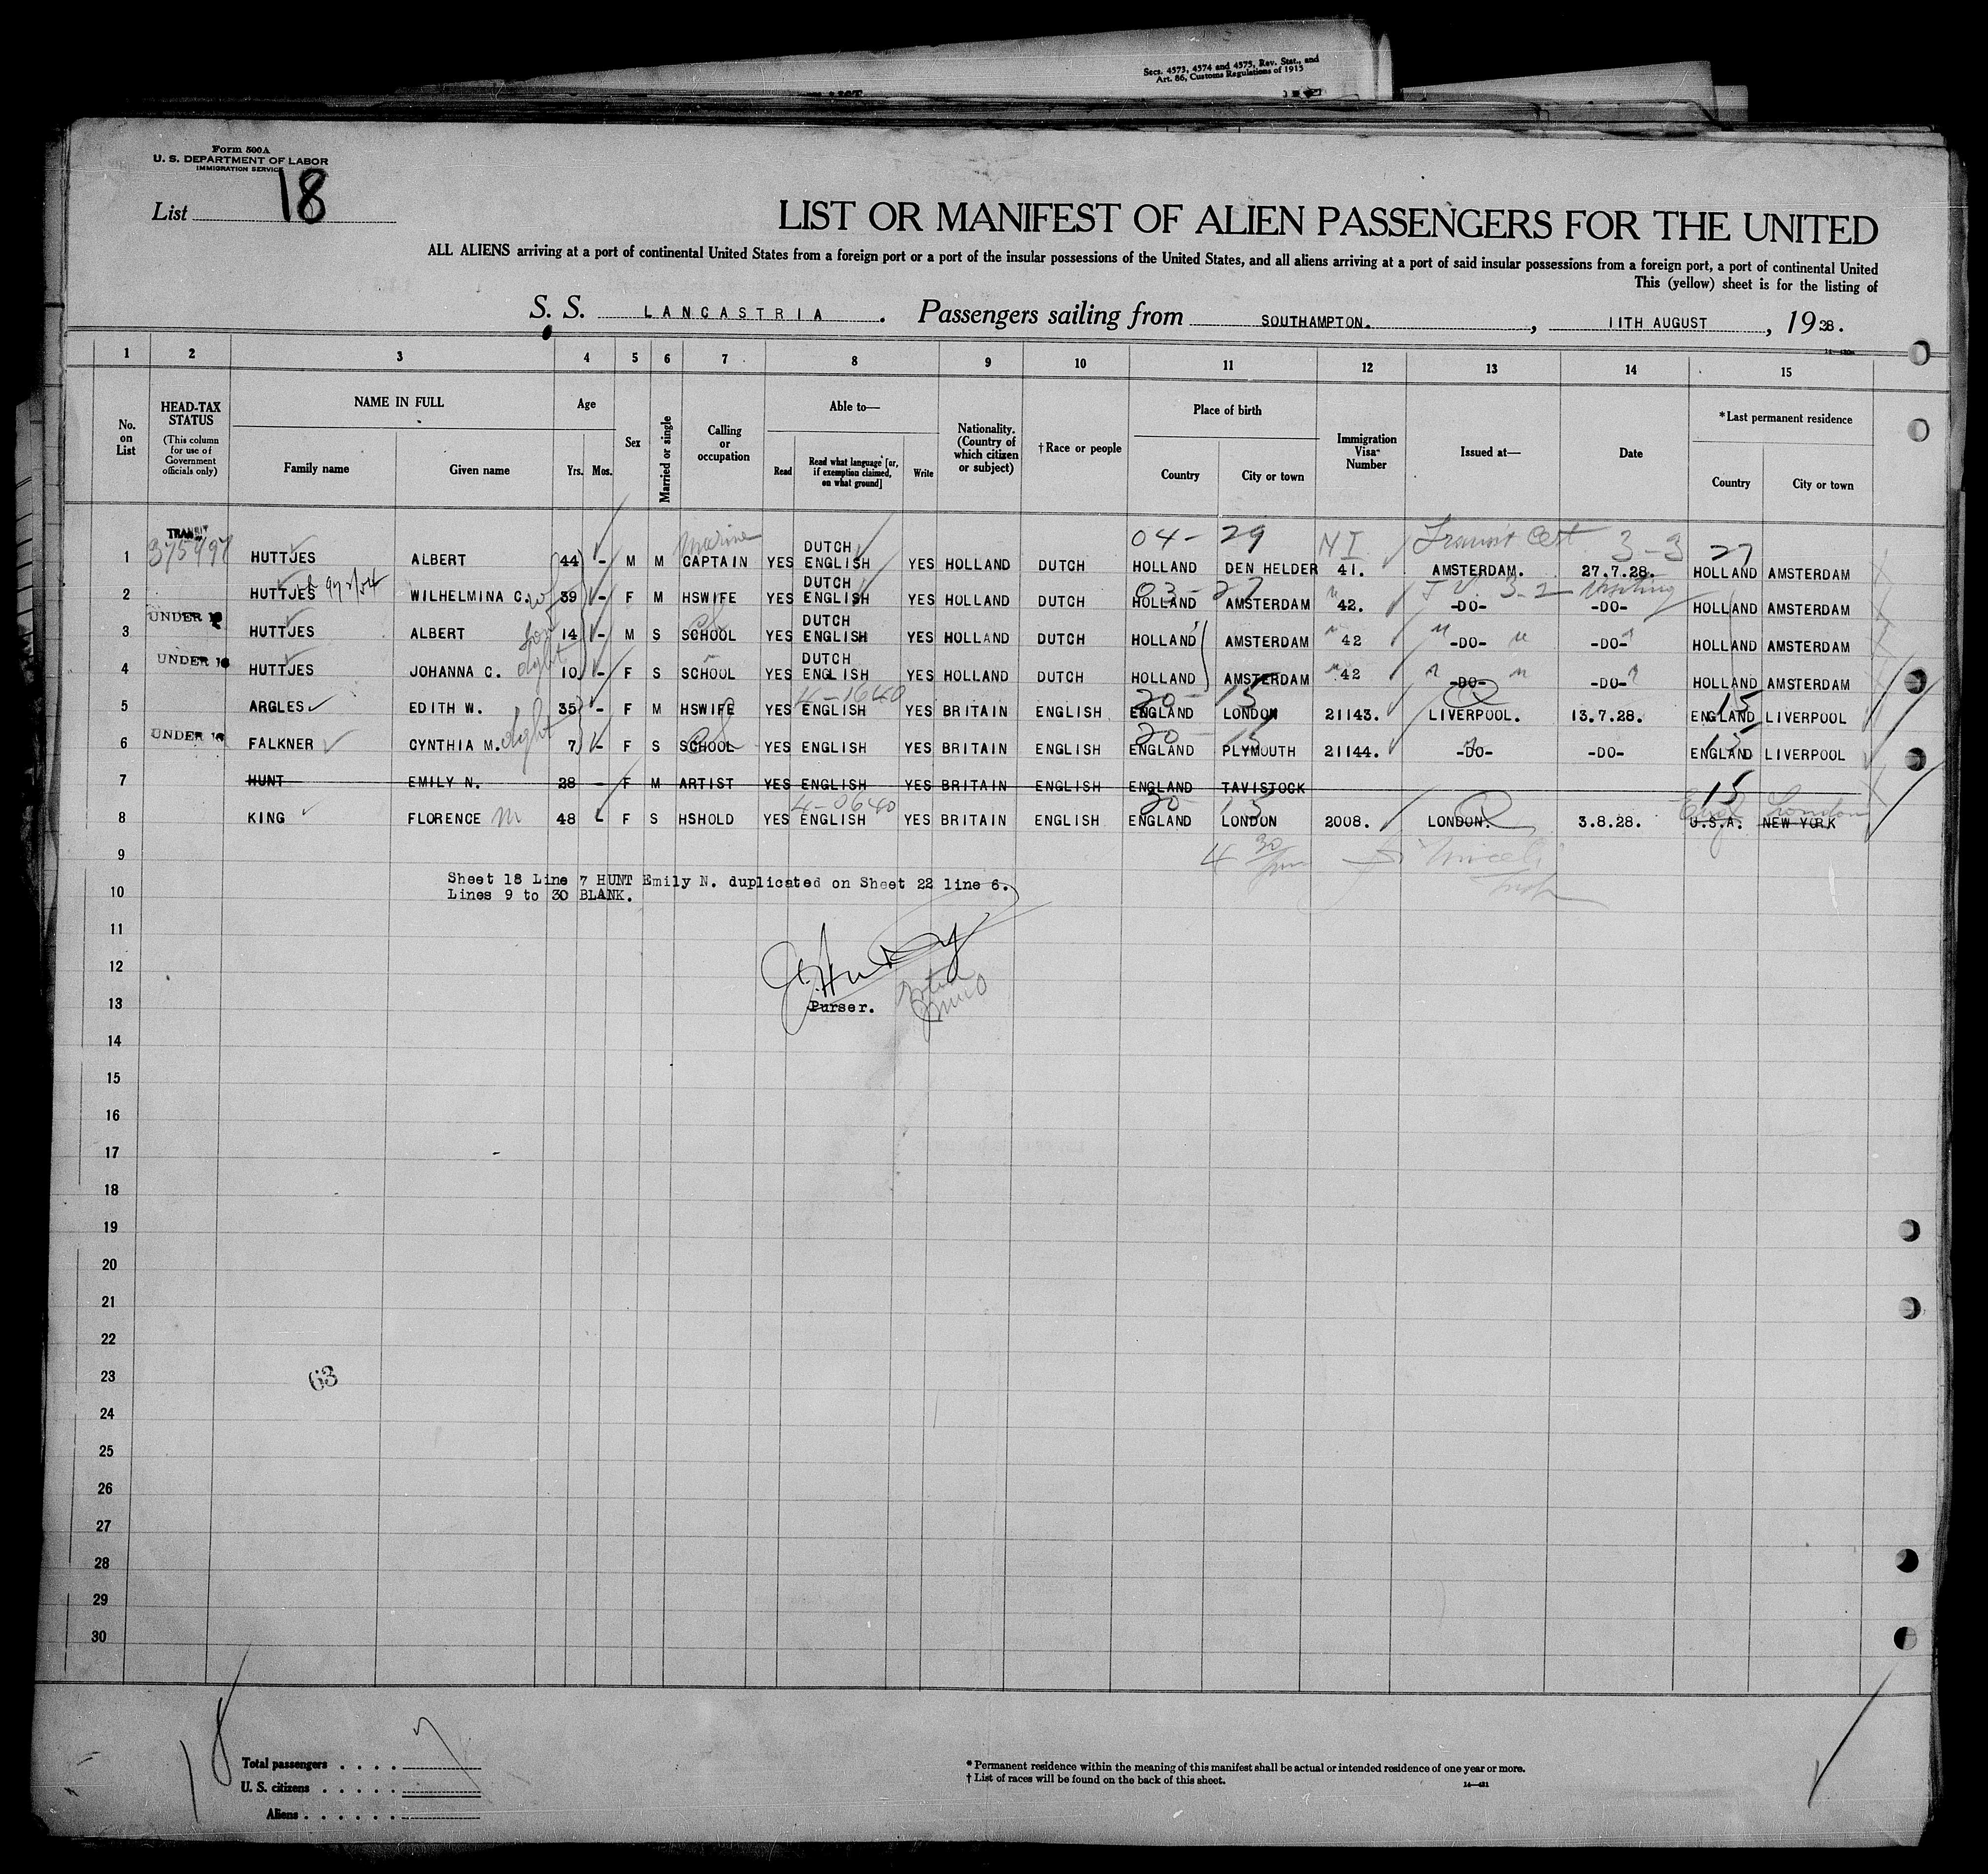 Secs. 4573, 4574 and 4575, Rev. Stat., and
Art. 86, Customs Regulations of 1915
Form 500A
U. S. DEPARTMENT OF LABOR
IMMIGRATION SERVICE
List 18
LIST OR MANIFEST OF ALIEN PASSENGERS FOR THE UNITED
ALL ALIENS arriving at a port of continental United States from a foreign port or a port of the insular possessions of the United States, and all aliens arriving at a port of said insular possessions from a foreign port, a port of continental United
This (yellow) sheet is for the listing of
S. S. LANCASTRIA. Passengers sailing from SOUTHAMPTON. , 11TH AUGUST , 1928.
1 2 3 4 5 6 7 8 9 10 11 12 13 14 15
No. on List
HEAD-TAX STATUS (This column for use of Government officials only)
NAME IN FULL
Family name Given name
Age
Yrs. Mos.
Sex
Married or single
Calling or occupation
Able to—
Read Read what language [or, if exemption claimed, on what ground] Write
Nationality. (Country of which citizen or subject)
†Race or people
Place of birth
Country City or town
Immigration Visa Number
Issued at—
Date
*Last permanent residence
Country City or town
TRANSIT Marine DUTCH 04-29 NI Transit Cert 3-3 27
1 HUTTJES ALBERT 44 - M M CAPTAIN YES ENGLISH YES HOLLAND DUTCH HOLLAND DEN HELDER 41. AMSTERDAM. 27.7.28. HOLLAND AMSTERDAM
DUTCH 03-27 3-2 visiting
2 HUTTJES WILHELMINA C. wf 39 - F M HSWIFE YES ENGLISH YES HOLLAND DUTCH HOLLAND AMSTERDAM 42. -DO- -DO- HOLLAND AMSTERDAM
UNDER 16 DUTCH
3 HUTTJES ALBERT son 14 - M S SCHOOL YES ENGLISH YES HOLLAND DUTCH HOLLAND AMSTERDAM 42 -DO- -DO- HOLLAND AMSTERDAM
UNDER 16 DUTCH
4 HUTTJES JOHANNA C. dght 10 - F S SCHOOL YES ENGLISH YES HOLLAND DUTCH HOLLAND AMSTERDAM 42 -DO- -DO- HOLLAND AMSTERDAM
4-1640 20-15 15
5 ARGLES EDITH W. 35 - F M HSWIFE YES ENGLISH YES BRITAIN ENGLISH ENGLAND LONDON 21143. LIVERPOOL. 13.7.28. ENGLAND LIVERPOOL
UNDER 16 20-15 15
6 FALKNER CYNTHIA M. dght 7 - F S SCHOOL YES ENGLISH YES BRITAIN ENGLISH ENGLAND PLYMOUTH 21144. -DO- -DO- ENGLAND LIVERPOOL
7 HUNT EMILY N. 28 - F M ARTIST YES ENGLISH YES BRITAIN ENGLISH ENGLAND TAVISTOCK
4-0640 20-15 15 Eng London
8 KING FLORENCE M 48 - F S HSHOLD YES ENGLISH YES BRITAIN ENGLISH ENGLAND LONDON 2008. LONDON. 3.8.28. U.S.A. NEW YORK
9
Sheet 18 Line 7 HUNT Emily N. duplicated on Sheet 22 line 6.
10 Lines 9 to 30 BLANK.
11
12
13 Purser.
14
15
16
17
18
19
20
21
22
23 63
24
25
26
27
28
29
30
18
Total passengers . . . . 7
U. S. citizens . . . . .
Aliens . . . . . .
* Permanent residence within the meaning of this manifest shall be actual or intended residence of one year or more.
† List of races will be found on the back of this sheet.
14—421